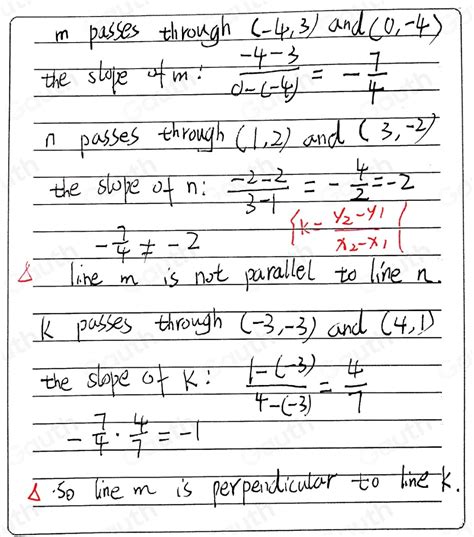 m passes through (-4,3) and (0,-4)
the slope of m: \frac{-4-3}{0-(-4)} = -\frac{7}{4}
n passes through (1,2) and (3,-2)
the slope of n: \frac{-2-2}{3-1} = -\frac{4}{2} = -2
-\frac{7}{4} ≠ -2 {k = \frac{y_2-y_1}{x_2-x_1}}
Δ line m is not parallel to line n.
k passes through (-3,-3) and (4,1)
the slope of k: \frac{1-(-3)}{4-(-3)} = \frac{4}{7}
-\frac{7}{4} · \frac{4}{7} = -1
Δ ·So line m is perpendicular to line k.